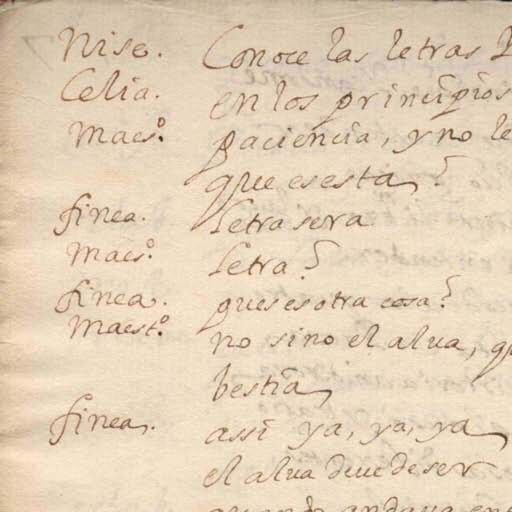 Nise. Conoce las letras
Celia. en los principios
Maes.º paciencia, y no le
que es esta?
finea. letra sera
Maes.º letra?
finea. pues es otra cosa?
Maest.º no sino el alua, q
bestia
finea. assi ya, ya, ya
el alua deue de ser
andaua en